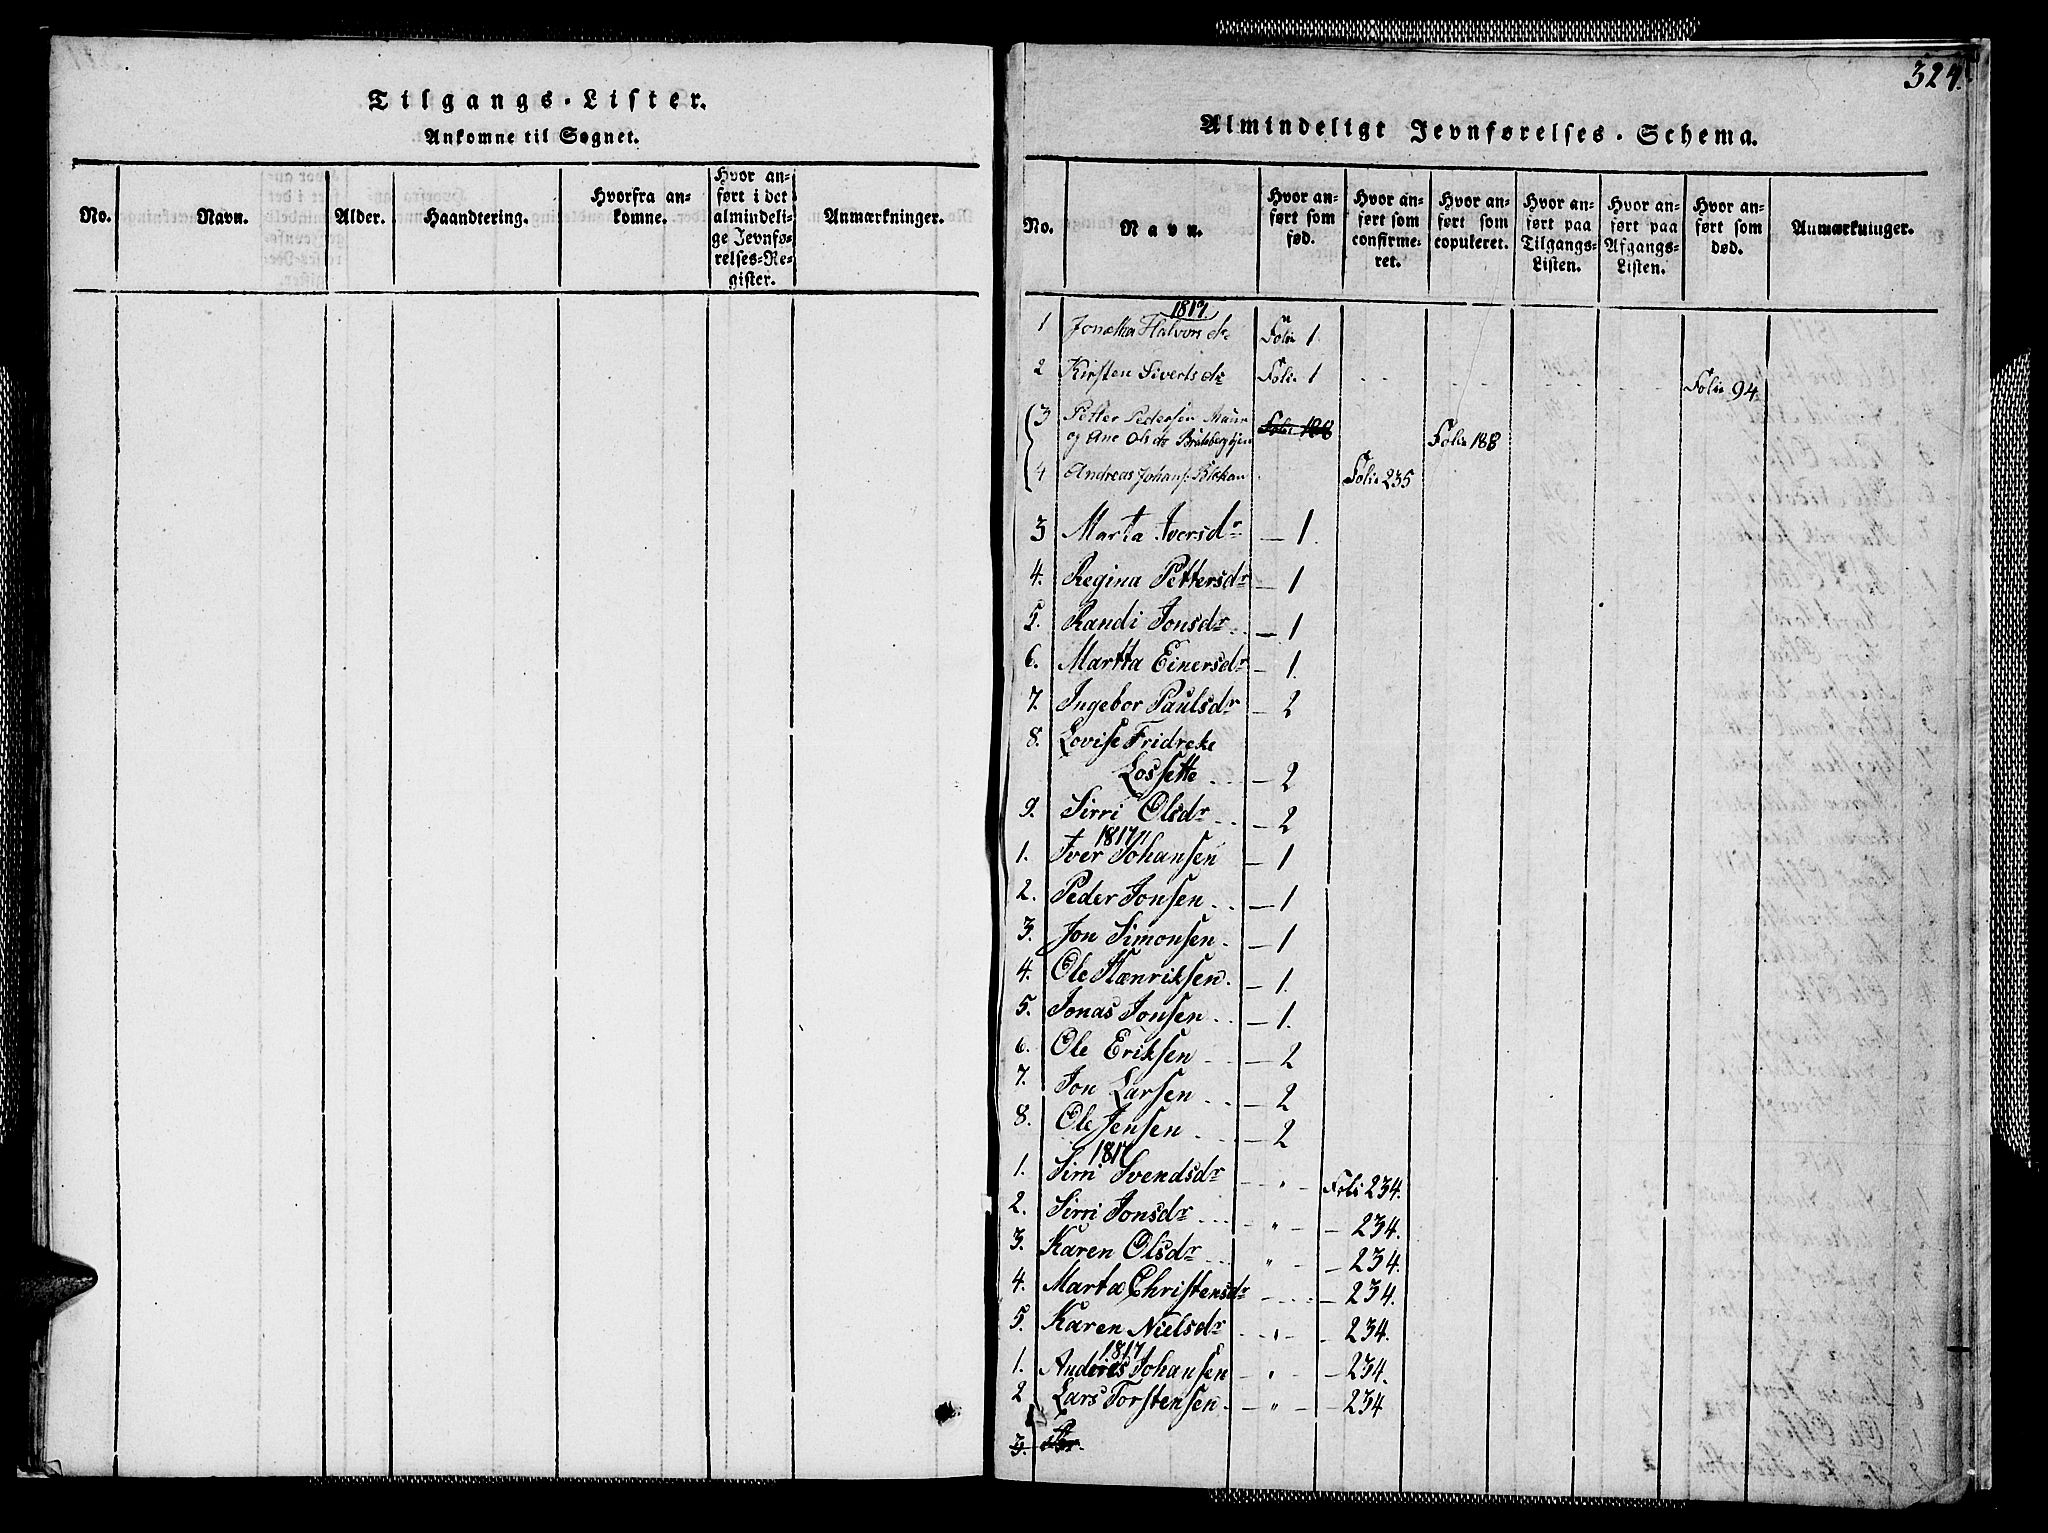 Tilgangs-Lister.
Ankomne til Sognet.
No.
Navn.
Alder.
Haandtering.
Hvorfra an=
komne.
Hvor an=
ført i det
almindeli=
ge Jevnfø=
relses=Re=
gister.
Anmærkninger.
324.
Almindeligt Jevnførelses-Schema.
No.
Navn.
Hvor an=
ført som
fød.
Hvor an=
ført som
confirme=
ret.
Hvor an=
ført som
copuleret.
Hvor an=
ført paa
Tilgangs=
Listen.
Hvor an=
ført paa
Afgangs=
Listen.
Hvor an=
ført som
død.
Anmærkninger.
1817.
1 Jonetta Halvorsdr Folio 1.
2 Kirsten Sivertsdr Folio 1 Folio 94
3 Petter Pedersen
og Ane Olsdr Folio 188 Folio 188
4 Andreas Johans. Folio 235
3 Marta Iversdr — 1.
4. Regina Pettersdr — 1
5. Randi Jonsdr — 1
6. Martta Einersdr — 1.
7. Ingebor Paulsdr — 2
8. Lovise Fridreke
Lossette — 2
9. Sirri Olsdr — 2
1817
1. Iver Johansen — 1
2. Peder Jonsen — 1
3. Jon Simonsen — 1
4. Ole Hænriksen — 1.
5. Jonas Jonsen — 1.
6. Ole Eriksen — 2
7. Jon Larsen — 2
8. Ole Jensen — 2
1817
1. Sirri Svendsdr — " — Folio 234.
2. Sirri Jonsdr " — 234.
3. Karen Olsdr " — 234.
4. Marta Christensdr — 234.
5. Karen Nielsdr " — 234.
1817
1. Anders Johansen " — 234.
2 Lars Torstensen " — 234
3.